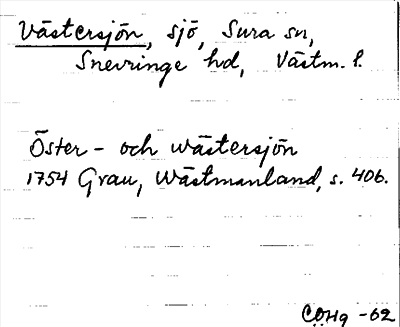 Västersjön, sjö, Sura sn,
Snevringe hd, Västm. l.
Öster- och Wästersjön
1754 Grau, Wästmanland, s. 406.
CÖHg -62